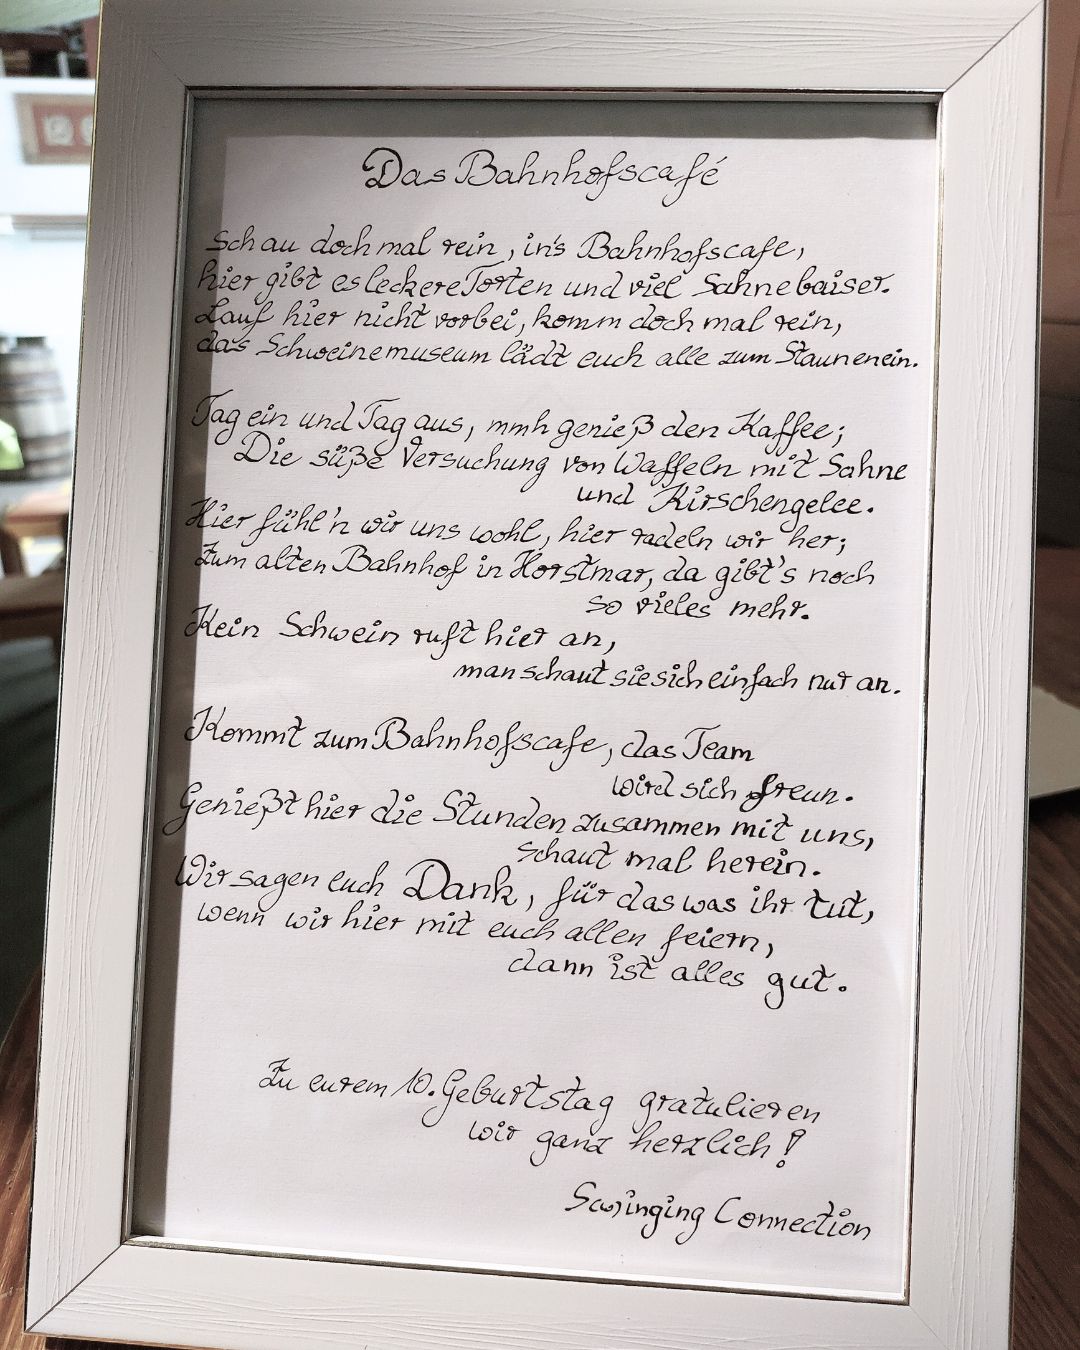 Das Bahnhofscafé
Schau doch mal rein, in's Bahnhofscafe,
hier gibt es leckere Torten und viel Sahnebaiser.
Lauf hier nicht vorbei, komm doch mal rein,
das Schweinemuseum lädt euch alle zum Staunen ein.
Tag ein und Tag aus, mmh genieß den Kaffee;
Die süße Versuchung von Waffeln mit Sahne
und Kirschengelee.
Hier fühl'n wir uns wohl, hier radeln wir her;
Zum alten Bahnhof in Horstmar, da gibt's noch
so vieles mehr.
Kein Schwein ruft hier an,
man schaut sie sich einfach nur an.
Kommt zum Bahnhofscafe, das Team
wird sich freun.
Genießt hier die Stunden zusammen mit uns,
schaut mal herein.
Wir sagen euch Dank, für das was ihr tut,
wenn wir hier mit euch allen feiern,
dann ist alles gut.
Zu eurem 10. Geburtstag gratulieren
wir ganz herzlich!
Swinging Connection